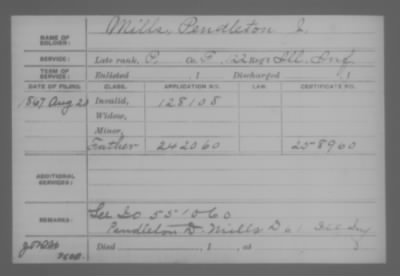 NAME OF SOLDIER: Mills, Pendleton
SERVICE: Late rank, P. Co. F, 122 Reg't Ill. Inf.
TERM OF SERVICE: Enlisted , 1 Discharged , 1
DATE OF FILING. CLASS. APPLICATION NO. LAW. CERTIFICATE NO.
1867 Aug 20 Invalid, 128108
Widow,
Minor,
Father 242060 258960
ADDITIONAL SERVICES:
REMARKS: See 551060
Pendleton D. Mills Ill Inf
Died , 1 , at